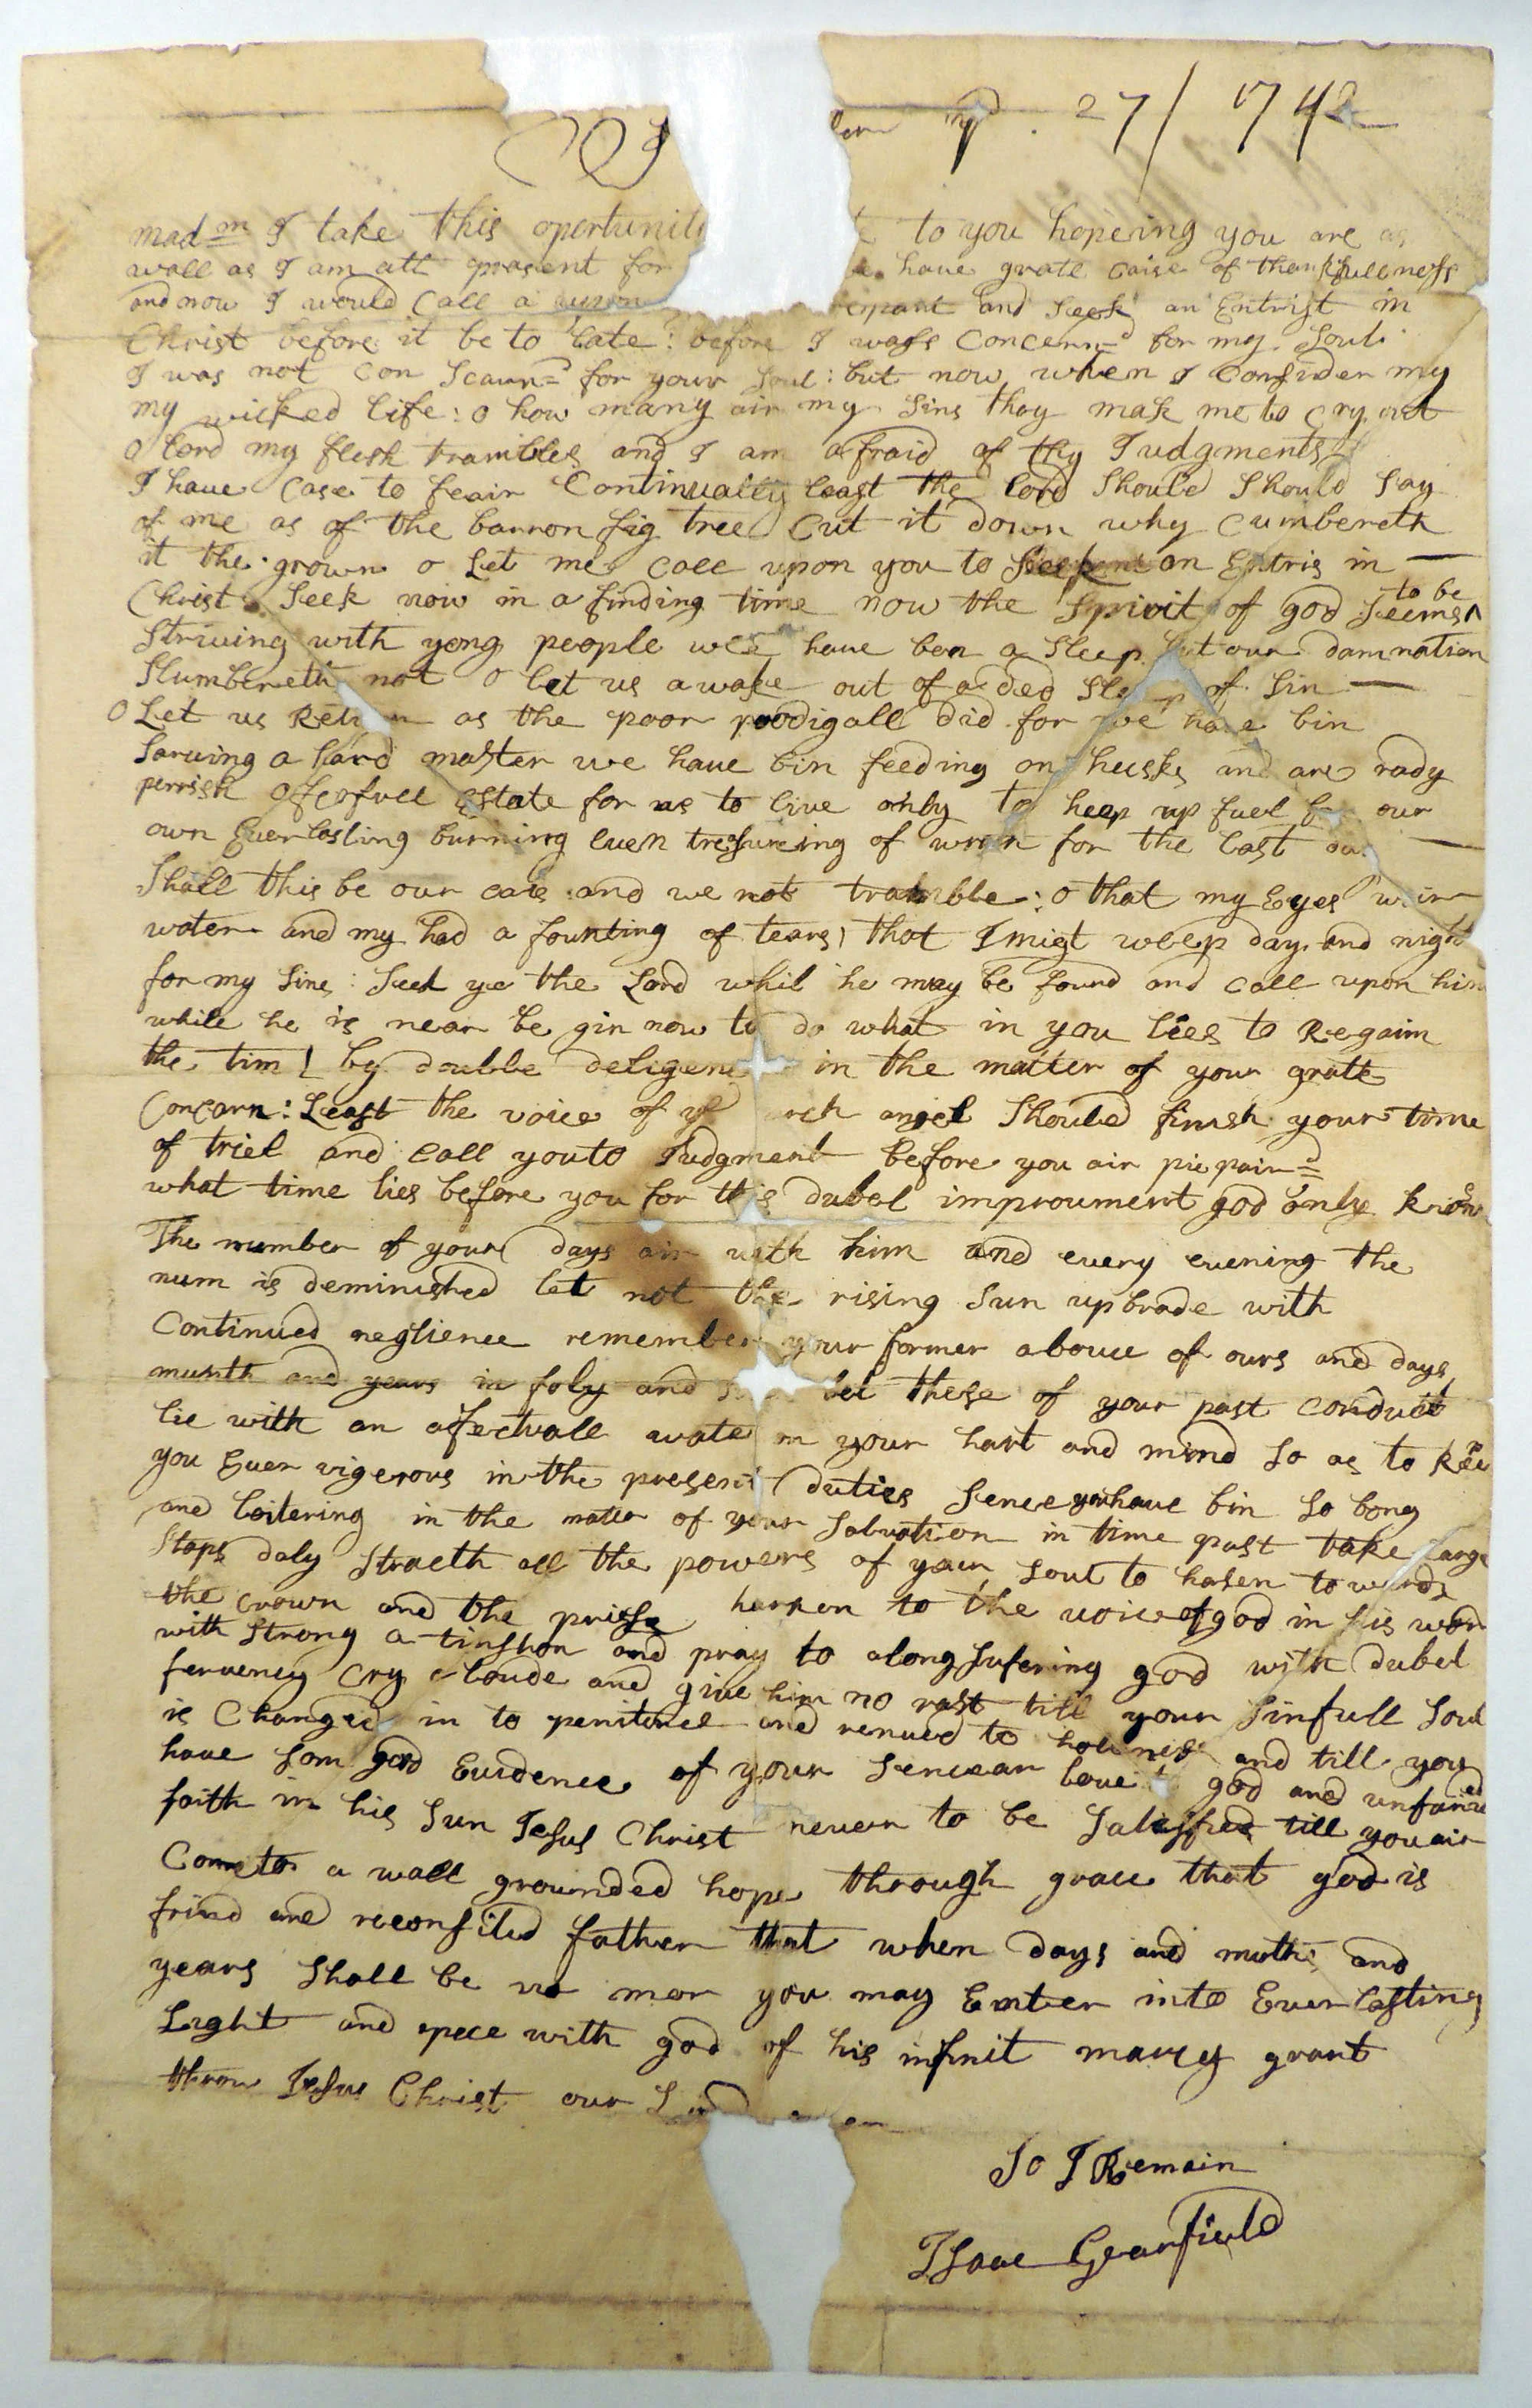 27/ 1742
madm I take this oportunit to you hopeing you are as
wall as I am att prasent for have grate caise of thankfullness
and now I would Call a upon repant and Seek an Entrist in
Christ before it be to late: before I wass Concernd for my Soul:
I was not Con Scaurnd for your Soul: but now when I Consider my
my wicked life: o how many air my Sins thay mak me to cry out
o lord my flesh trambles and I am afraid of thy Iudgments
I have Case to feair Continually least the lord Should Should Say
of me as of the barron fig tree Cut it down why Cumbereth
it the grown o Let me Call upon you to Seek an Entris in
Christ Seek now in a finding time now the Spirit of god Seems to be
Striving with yong people wee have ben a Sleep but our damnation
Slumbereth not o let us awake out of a ded Sleep of Sin
o Let us Return as the poor prodigall did for we have bin
Sarving a hard master we have bin feeding on husks and are rady
perrish Estate for us to live only to heep up fuel for our
own Everlasting burning even tresureing of wrath for the last da
Shall this be our cais and we not trambble: o that my Eyes wair
water and my had a founting of tears that I migt weep day and night
for my Sins: Seek ye the Lord whil he may be found and call upon him
while he is near be gin now to do what in you lies to Regaim
the tim by doubbe deligenc in the matter of your gratt
Concarn: Least the voice of ye arch angel Should finish your time
of triel and call you to Iudgment before you air prepaird
what time lies before you for this dubel improument god only knows
The number of your days air with him and every evening the
num is deminished let not the rising Sun upbrade with
Continued neglience remember your former abouce of ours and days
munth and years in foly and let these of your past conduct
lie with an afectuall wate on your hart and mind So as to Keep
you Ever vigerous in the present duties Sence you have bin So long
and loitering in the mater of your Salvation in time past take large
Staps daly Straeth all the powers of your Soul to hasen towards
the crown and the prisse harken to the voice of god in his word
with Strong a tinshon and pray to a long Sufering god with dubel
fervency Cry a loude and give him no rast till your Sinfull Soul
is Changed in to penitence and renued to holiness and till you
have Som good Evidence of your Sencear love to god and unfained
faith in his Sun Jesus Christ never to be Satisfied till you air
Come to a wall grounded hope through grace that god is
frind and reconsiled father that when days and moths and
years Shall be no mor you may Entver into Everlasting
Light and pece with god of his infinit marcy grant
throu Jesus Christ our Lord
So I Remain
Isaac Gearfield